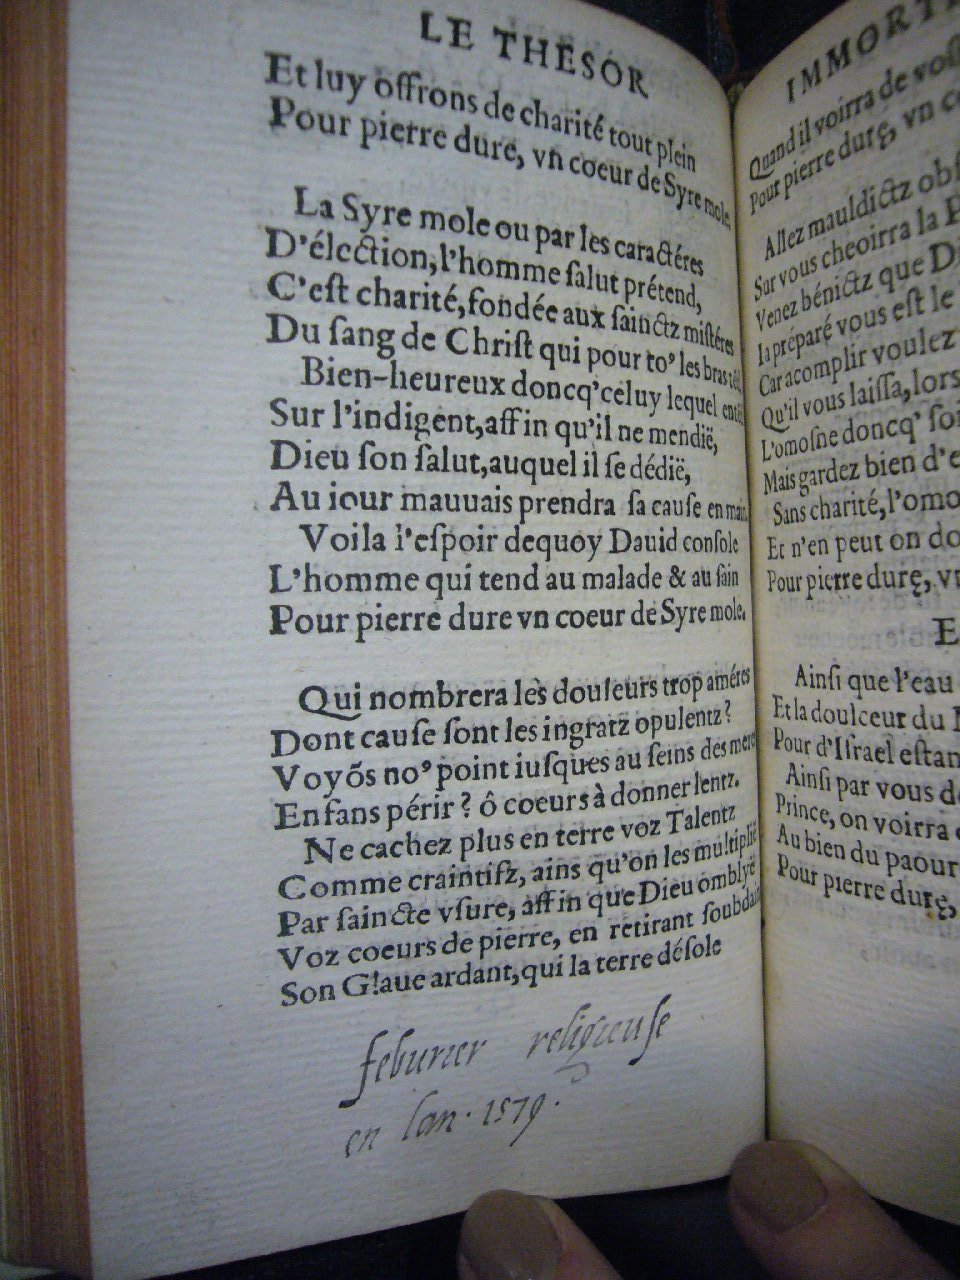 LE THESOR
Et luy offrons de charité tout plein
Pour pierre dure, vn coeur de Syre mole.
La Syre mole ou par les caractéres
D'élection, l'homme ſalut prétend,
C'eſt charité, fondée aux ſainctz miſtéres
Du ſang de Chriſt qui pour to⁹ les bras
Bien-heureux doncq' celuy lequel
Sur l'indigent, affin qu'il ne mendië,
Dieu ſon ſalut, auquel il ſe dédië,
Au iour mauuais prendra ſa cauſe en
Voila l'eſpoir dequoy Dauid conſole
L'homme qui tend au malade & au ſain
Pour pierre dure vn coeur de Syre mole.
Qui nombrera lès douleurs trop améres
Dont cauſe ſont les ingratz opulentz?
Voyõs no⁹ point iuſques au ſeins des
Enfans périr? ô coeurs à donner lentz.
Ne cachez plus en terre voz Talentz
Comme craintifz, ains qu'on les multiplië
Par ſaincte vſure, affin que Dieu omblyë
Voz coeurs de pierre, en retirant ſoubdain
Son Glaue ardant, qui la terre déſole
feburier religieuſe
en lan · 1579 ·
IMMORT
Quand il voirra de voſ
Pour pierre durę, vn
Allez mauldictz obſ
Sur vous cheoirra la
Venez bénictz que
Ia préparé vous eſt le
Car acomplir voulez
Qu'il vous laiſſa, lors
L'omoſne doncq' ſoi
Mais gardez bien d'e
Sans charité, l'omo
Et n'en peut on do
Pour pierre durę, vn
E
Ainſi que l'eau
Et la doulceur du
Pour d'Iſrael eſtan
Ainſi par vous de
Prince, on voirra
Au bien du paour
Pour pierre durę,